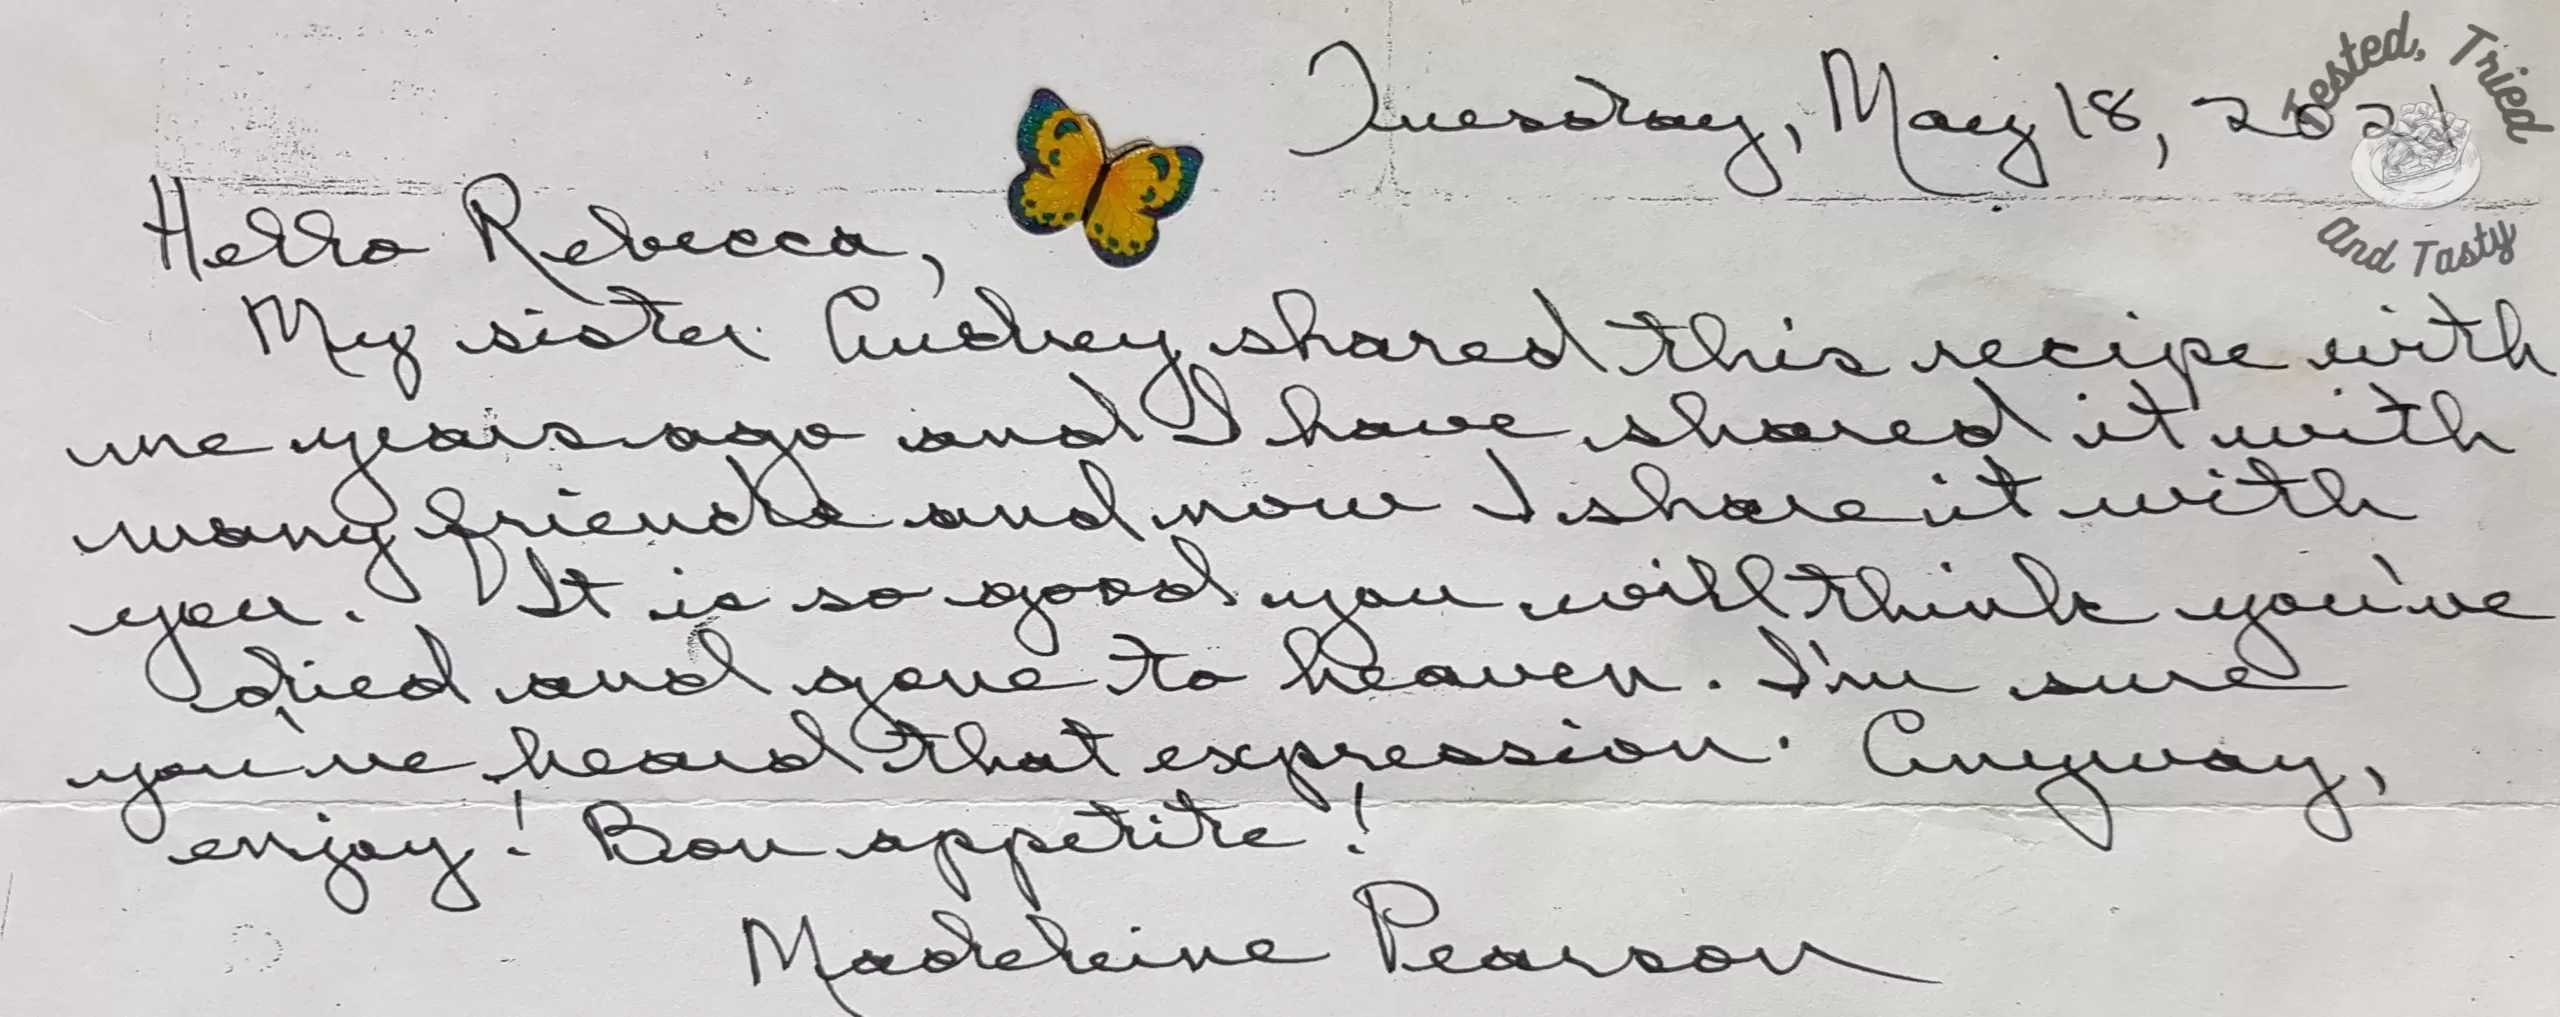 Tuesday, May 18, 2021
Tested, Tried
And Tasty
Hello Rebecca,
My sister Audrey shared this recipe with
me years ago and I have shared it with
many friends and now I share it with
you. It is so good you will think you've
died and gone to heaven. I'm sure
you've heard that expression. Anyway,
enjoy! Bon appetite!
Madeleine Pearson